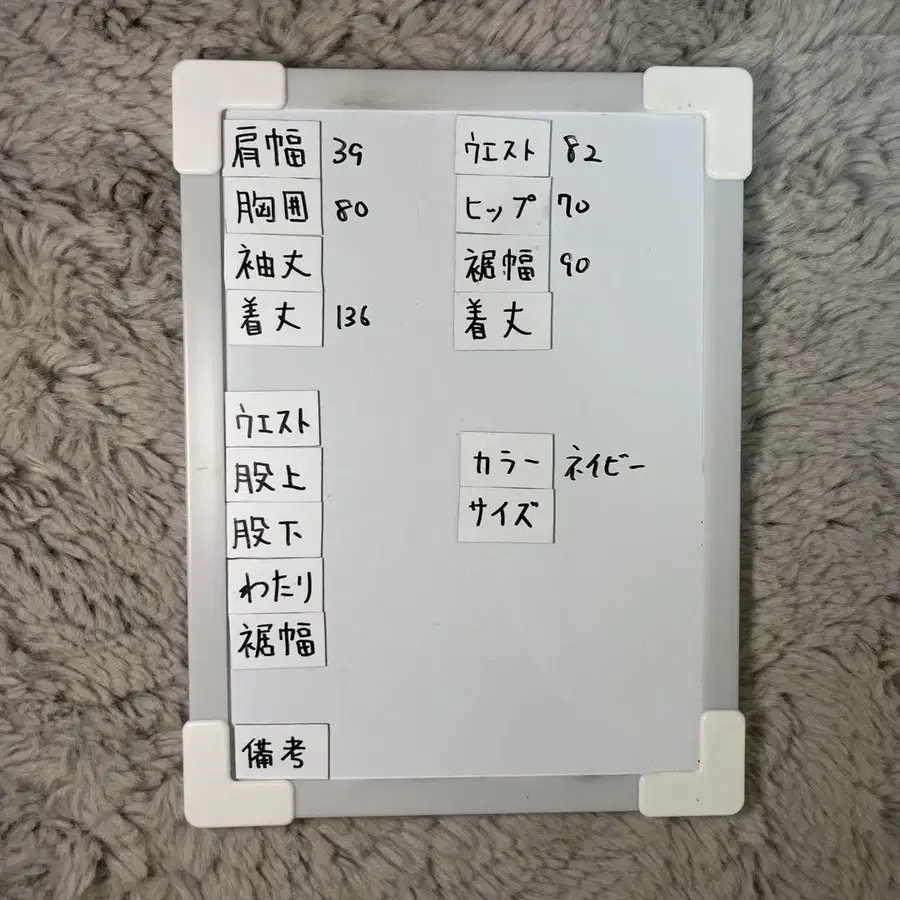 肩幅 39
胸囲 80
袖丈
着丈 136
ウエスト 82
ヒップ 70
裾幅 90
着丈
ウエスト
股上
股下
わたり
裾幅
カラー ネイビー
サイズ
備考